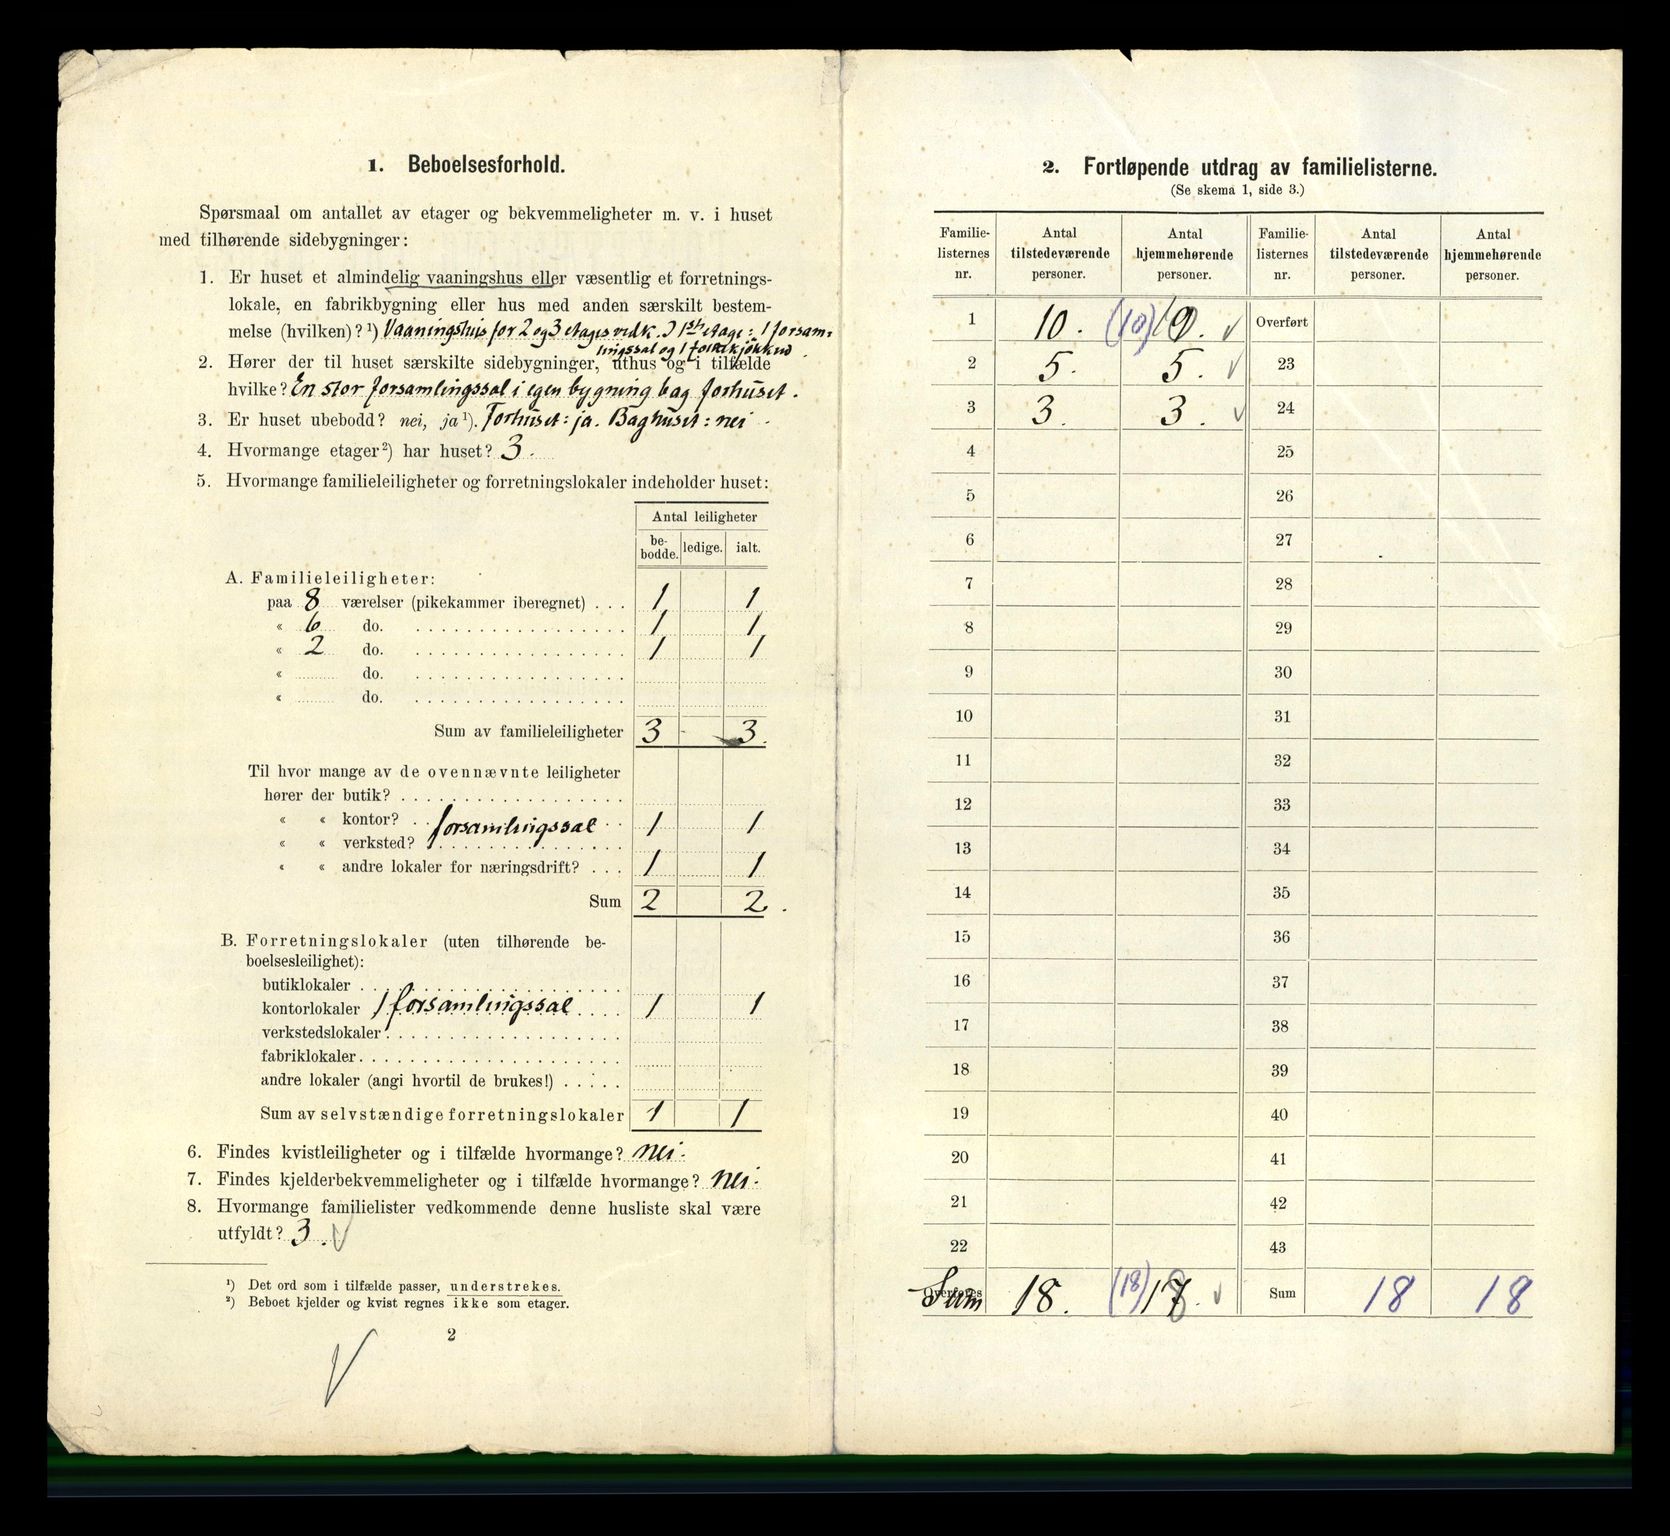 1. Beboelsesforhold.
Spørsmaal om antallet av etager og bekvemmeligheter m. v. i huset
med tilhørende sidebygninger:
1. Er huset et almindelig vaaningshus eller væsentlig et forretnings-
lokale, en fabrikbygning eller hus med anden særskilt bestem-
melse (hvilken)?¹) Vaaningshus for 2 og 3 etages vedk. I 1ste etage: 1 forsam-
lingssal og 1 folkekjøkken.
2. Hører der til huset særskilte sidebygninger, uthus og i tilfælde
hvilke? En stor forsamlingssal i egen bygning bag forhuset.
3. Er huset ubebodd? nei, ja¹). Forhuset: ja. Baghuset: nei
4. Hvormange etager²) har huset? 3.
5. Hvormange familieleiligheter og forretningslokaler indeholder huset:
Antal leiligheter
be-bodde. ledige. ialt.
A. Familieleiligheter:
paa 8 værelser (pikekammer iberegnet) . . . 1 1
« 6 do. 1 1
« 2 do. 1 1
« do.
« do.
Sum av familieleiligheter 3 - 3.
Til hvor mange av de ovennævnte leiligheter
hører der butik?
« « kontor? forsamlingssal 1 1
« « verksted?
« « andre lokaler for næringsdrift? . . . 1 1
Sum 2 2.
B. Forretningslokaler (uten tilhørende be-
boelsesleilighet):
butiklokaler
kontorlokaler 1 forsamlingssal 1 1
verkstedslokaler
fabriklokaler
andre lokaler (angi hvortil de brukes!)
Sum av selvstændige forretningslokaler 1 1
6. Findes kvistleiligheter og i tilfælde hvormange? nei.
7. Findes kjelderbekvemmeligheter og i tilfælde hvormange? nei.
8. Hvormange familielister vedkommende denne husliste skal være
utfyldt? 3.
¹) Det ord som i tilfælde passer, understrekes.
²) Beboet kjelder og kvist regnes ikke som etager.
2
2. Fortløpende utdrag av familielisterne.
(Se skema 1, side 3.)
Familie-listernes nr. Antal tilstedeværende personer. Antal hjemmehørende personer. Familie-listernes nr. Antal tilstedeværende personer. Antal hjemmehørende personer.
1 10. (10) Overført
2 5. 5. 23
3 3. 3. 24
4 25
5 26
6 27
7 28
8 29
9 30
10 31
11 32
12 33
13 34
14 35
15 36
16 37
17 38
18 39
19 40
20 41
21 42
22 43
Overføres Sum 18. (18) 17 8. Sum 18 18